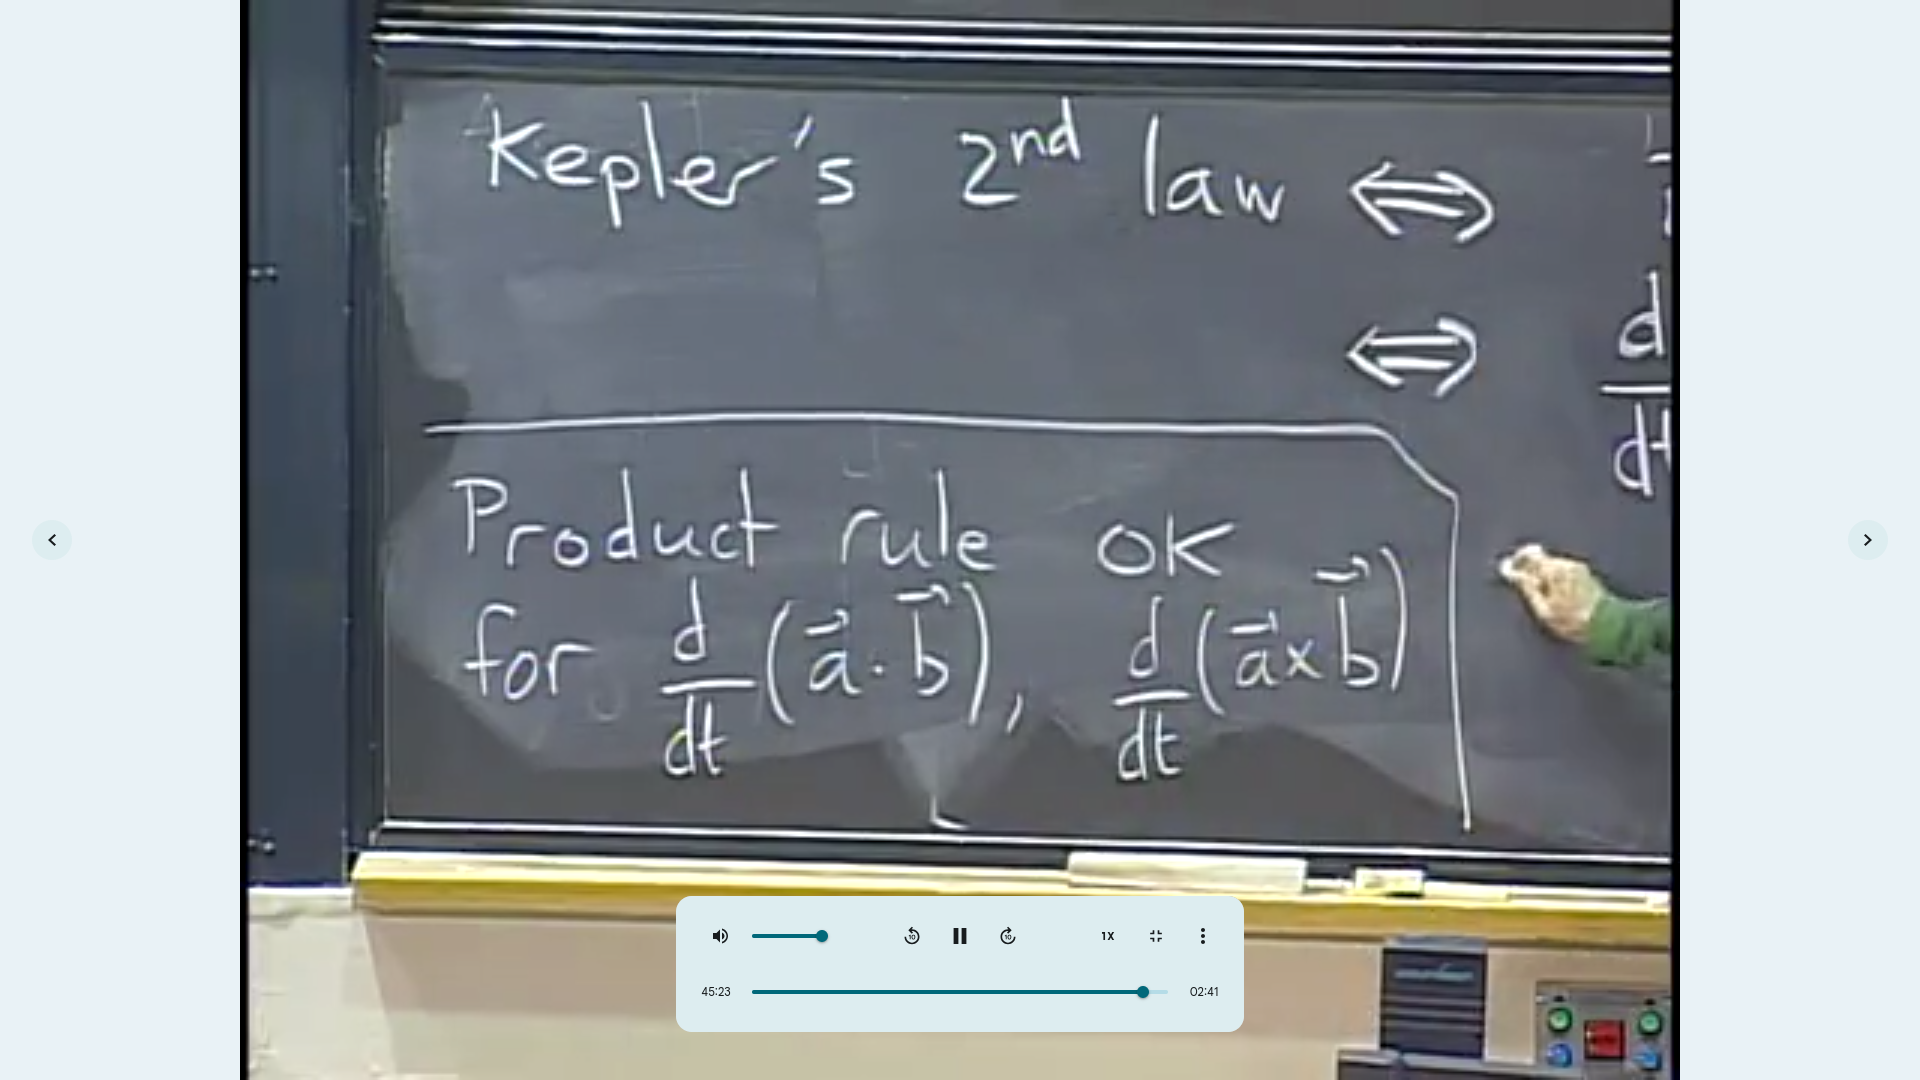 Kepler's 2nd law ⇔
⇔ d
dt
Product rule OK
for d/dt (a⃗ · b⃗), d/dt (a⃗ × b⃗)
10 10 1X
45:23 02:41